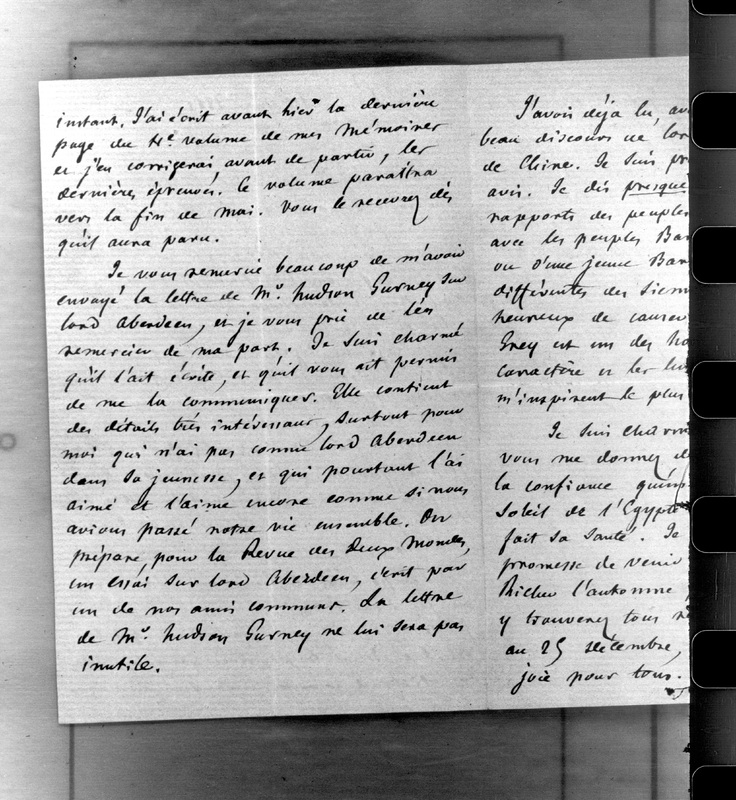 instant. J'ai écrit avant hier la dernière
page du 4e. volume de mes Mémoires
et j'en corrigerai, avant de partir, les
dernières épreuves. Ce volume paraîtra
vers la fin de mai. Vous le recevrez dès
qu'il aura paru.
Je vous remercie beaucoup de m'avoir
envoyé la lettre de Mr. Hudson Gurney sur
lord Aberdeen, et je vous prie de l'en
remercier de ma part. Je suis charmé
qu'il l'ait écrite, et qu'il vous ait permis
de me la communiquer. Elle contient
des détails très intéressans, surtout pour
moi qui n'ai pas connu lord Aberdeen
dans sa jeunesse, et qui pourtant l'ai
aimé et l'aime encore comme si nous
avions passé notre vie ensemble. On
prépare, pour la Revue des deux Mondes,
un essai sur lord Aberdeen, écrit par
un de nos amis communs. La lettre
de Mr. Hudson Gurney ne lui sera pas
inutile.
J'avois déja lu, av
beau discours de lor
de Chine. Je suis pr
avis. Je dis presque
rapports des peuples
avec les peuples Bar
ou d'une jeune Bar
différentes des sienn
heureux de causer
Grey est un des ho
caractère et les lu
m'inspirent le plus
Je suis charm
vous me donnez d
la confiance qu'en
soleil de l'Egypte
fait sa santé. Je
promesse de venir
Richer l'automne
y trouverez tous
au 25 septembre,
joie pour tous.